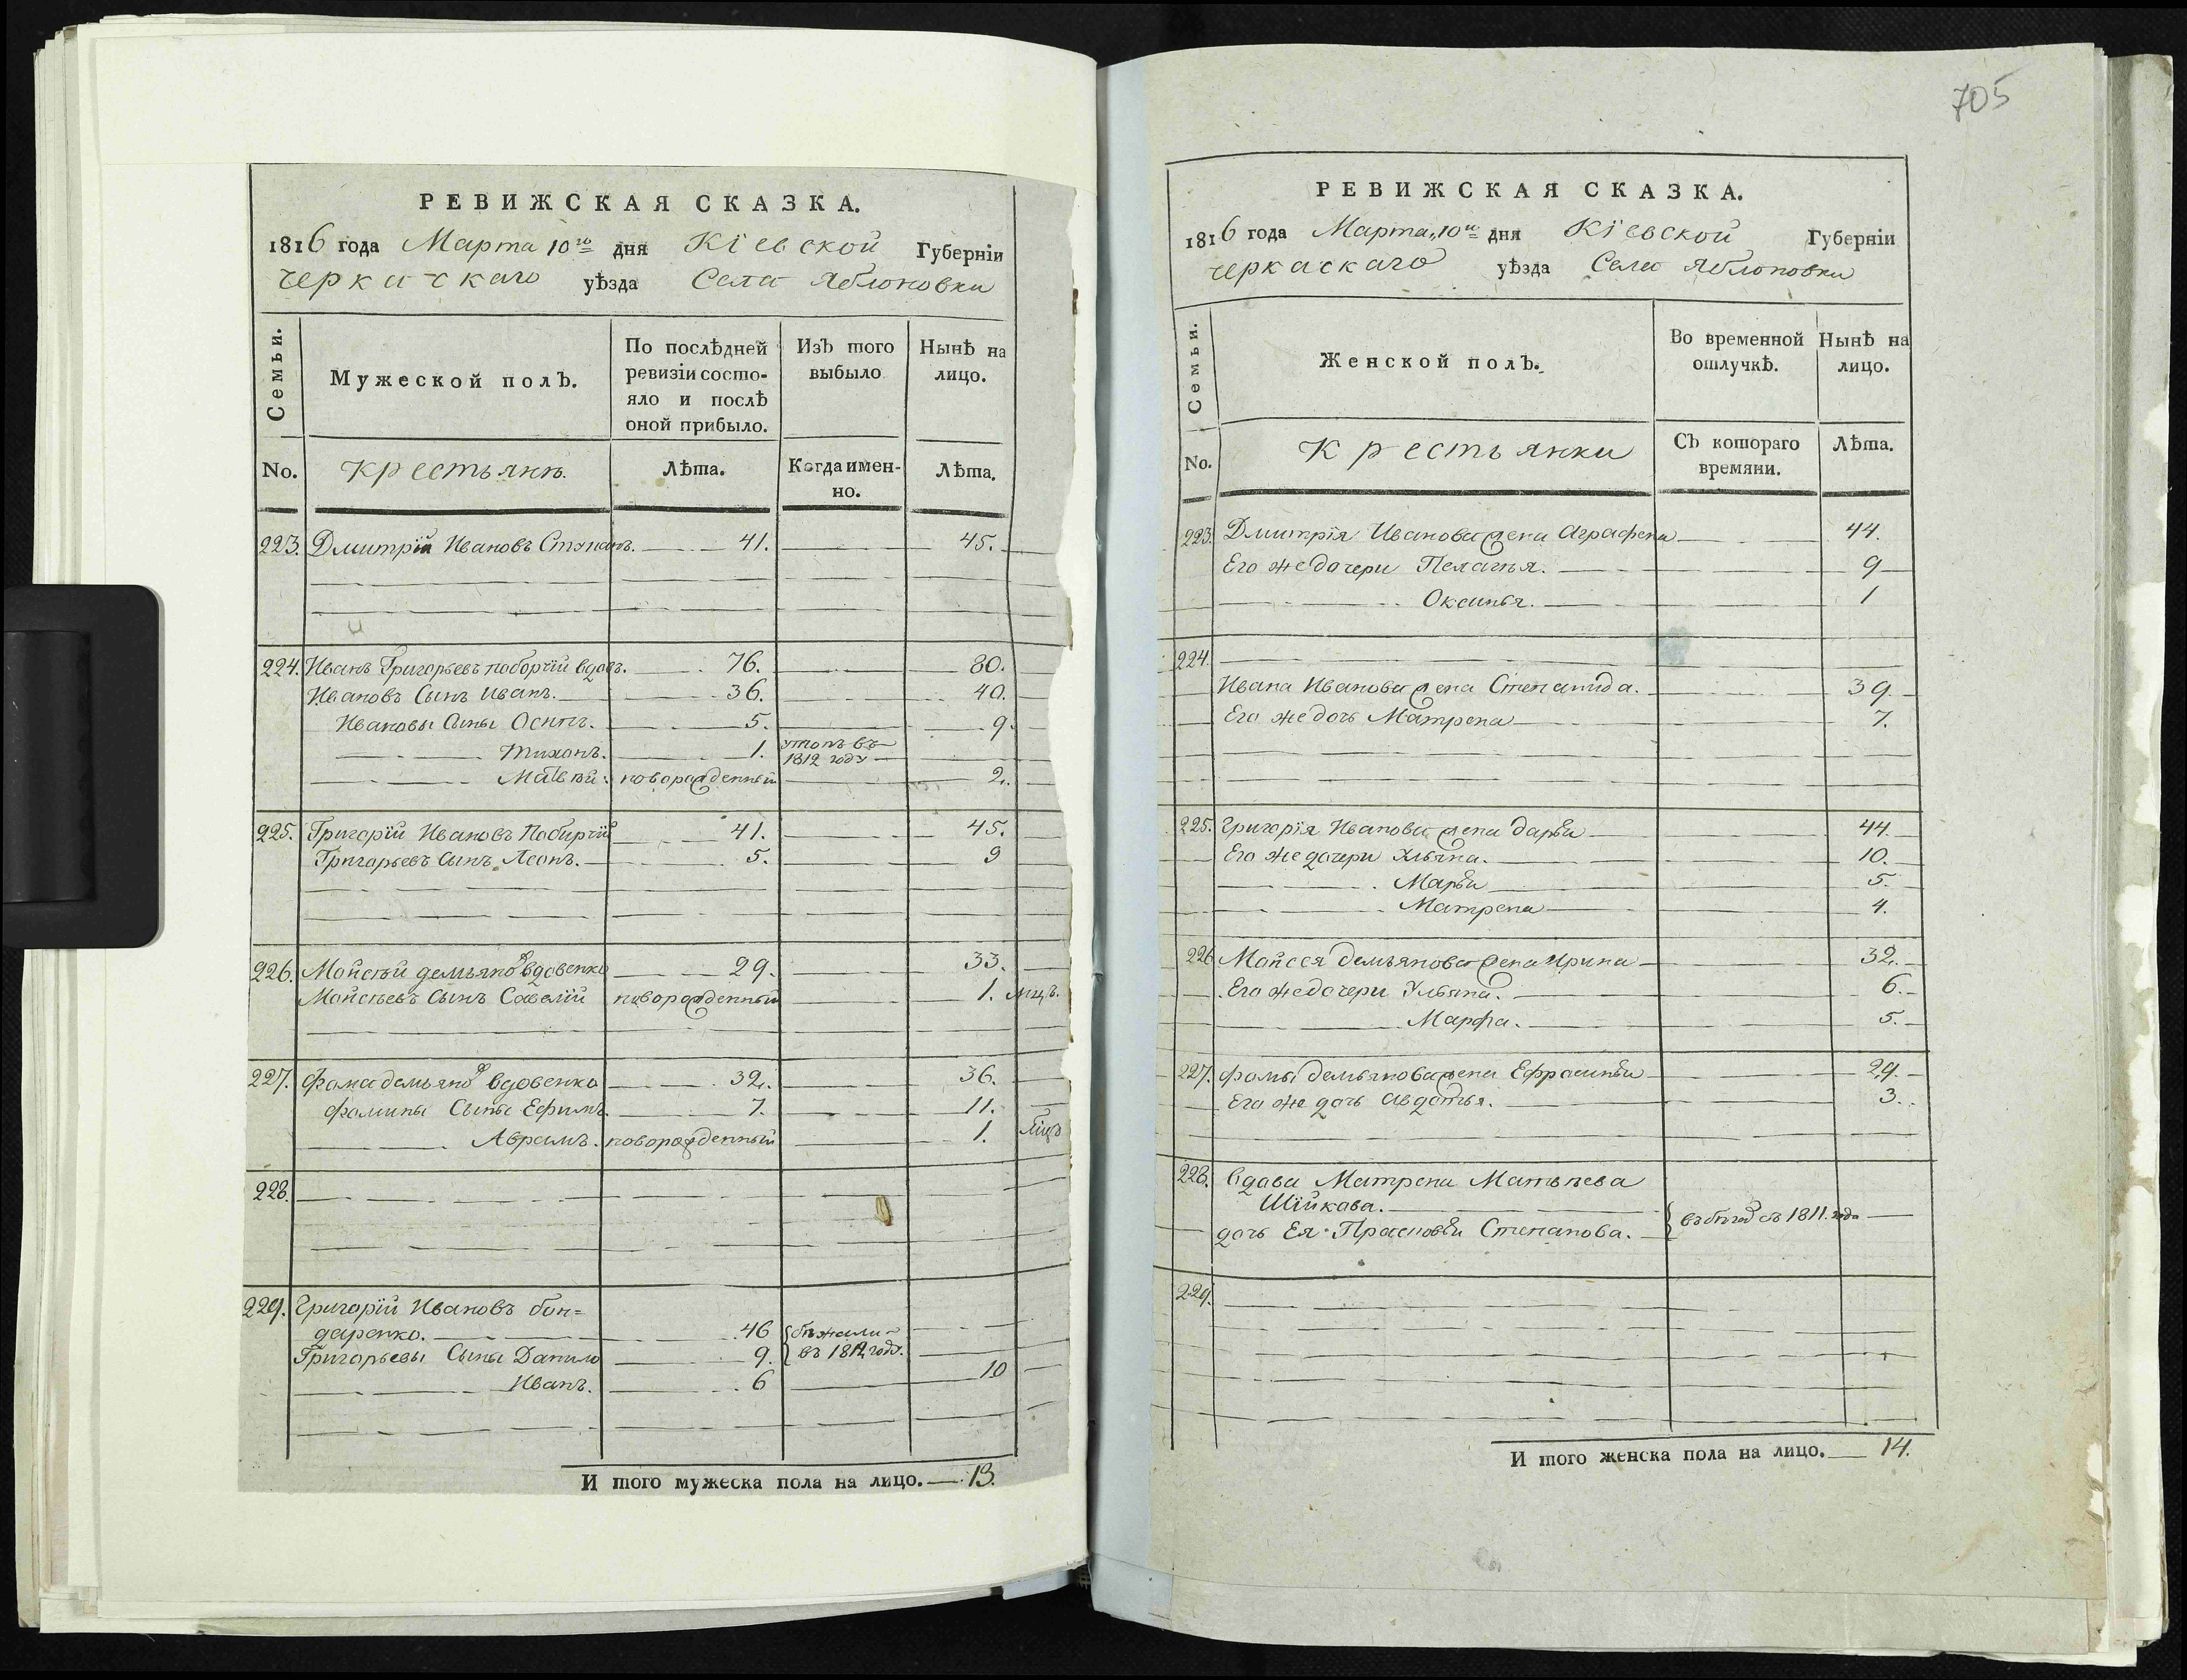 705
РЕВИЖСКАЯ СКАЗКА.
1816 года Марта 10го дня Кіевской Губерніи
черкаскаго уѣзда Села Яблоновки
Семьи.
Мужеской полъ.
По послѣдней ревизіи состо-
яло и послѣ
оной прибыло.
Изъ того
выбыло
Нынѣ на
лицо.
No.
Крестьянъ.
Лѣта.
Когда имен-
но.
Лѣта.
223. Дмитрій Ивановъ Степанъ. 41. 45.
224. Иванъ Григорьевъ поборчій вдовъ. 76. 80.
Ивановъ Сынъ Иванъ. 36. 40.
Ивановы Сыны Осипъ. 5. 9.
Тихонъ. 1. утопъ въ
1812 году
Матвѣй: новорожденный 2.
225. Григорій Ивановъ Побирчій 41. 45.
Григорьевъ Сынъ Леонъ. 5. 9
226. Мойсѣй демьяновъ вдовенко 29. 33.
Мойсѣевъ Сынъ Савелій новорожденный 1. мцъ.
227. фома демьяновъ вдовенко 32. 36.
фомины Сыны Ефимъ. 7. 11.
Аврамъ. новорожденный 1. мцъ
228.
229. Григорій Ивановъ бон=
даренко. 46 бѣжали
Григорьевы Сыны Данило 9. въ 1812 году.
Иванъ. 6 10
И того мужеска пола на лицо. 13.
РЕВИЖСКАЯ СКАЗКА.
1816 года Марта 10го дня Кіевской Губерніи
черкаскаго уѣзда Села Яблоновки
Семьи.
Женской полъ.
Во временной
отлучкѣ.
Нынѣ на
лицо.
No.
Крестьянки
Съ котораго
времяни.
Лѣта.
223. Дмитрія Иванова жена Аграфена 44.
Его же дочери Пелагья. 9
Оксинья. 1
224.
Ивана Иванова жена Степанида. 39.
Его же дочь Матрена 7.
225. Григорія Иванова жена дарья 44.
Его же дочери Ульяна. 10.
Марья 5.
Матрена 4.
226 Мойсея демьянова жена Ирина 32.
Его же дочери Ульяна. 6.
Марфа. 5.
227. фомы демьянова жена Ефрасинья 29.
Его же дочь авдотья. 3.
228. вдова Матрена Матвѣева
Шійкова.
въ бѣгахъ съ 1811. года
дочь Ея Прасковья Степанова.
229.
И того женска пола на лицо. 14.